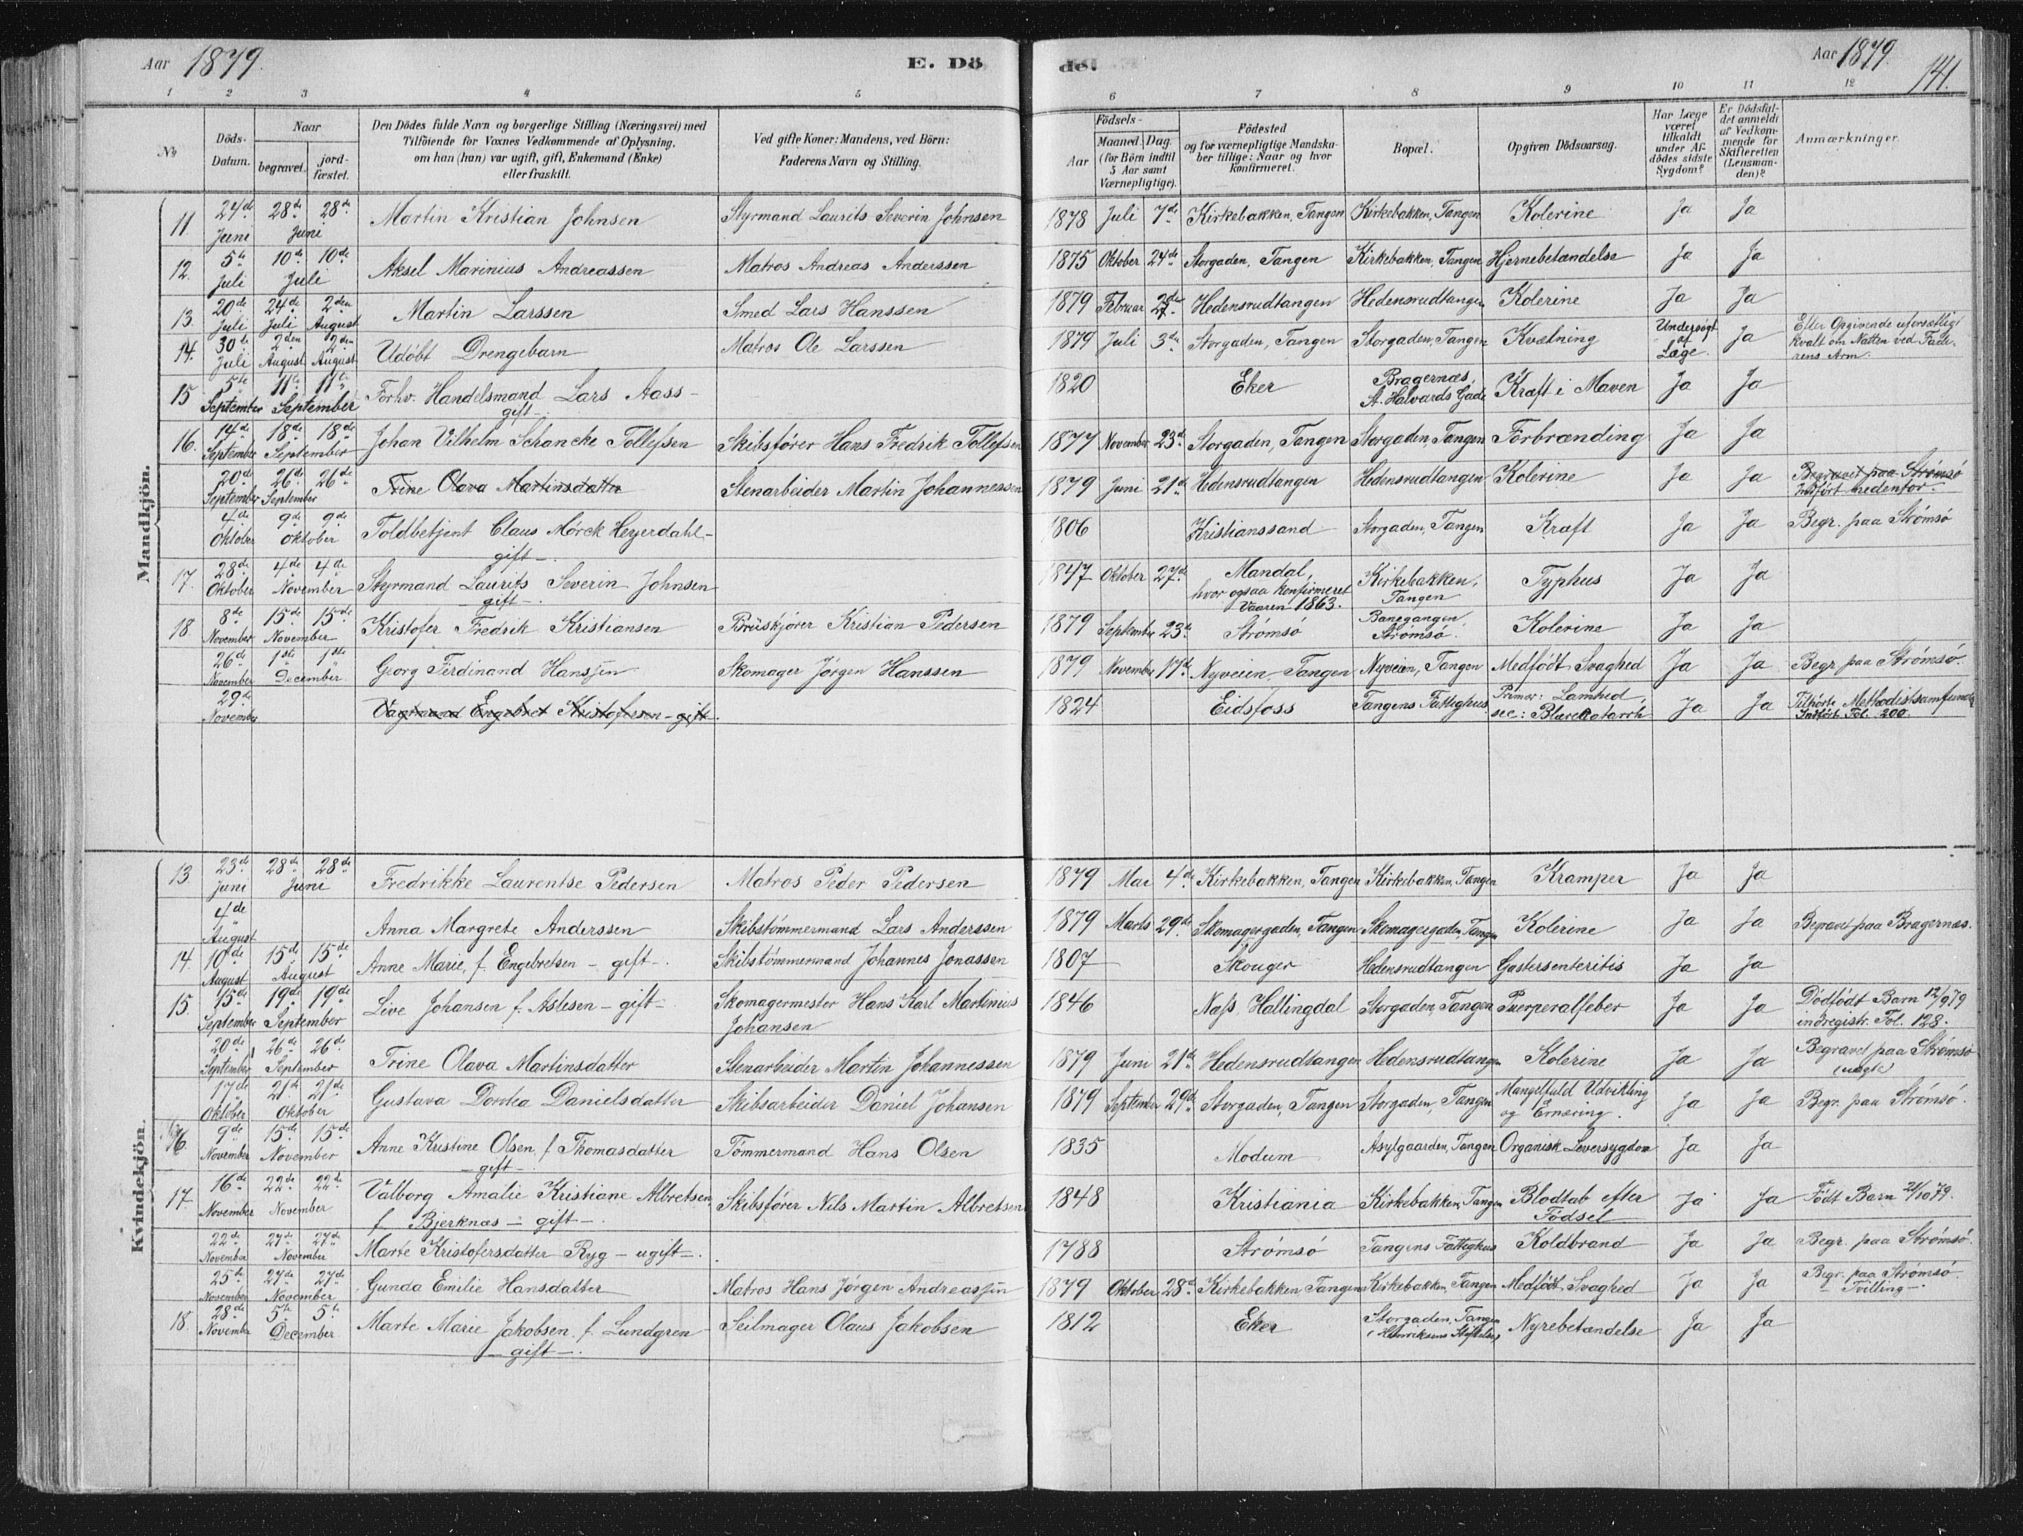 Aar 1879. E. Dö de! Aar 1879 141.
1 2 3 4 5 6 7 8 9 10 11 12
No
Döds-Datum.
Naar
begravet.
jordfæstet.
Den Dödes fulde Navn og borgerlige Stilling (Næringsvei) med
Tilföiende for Voxnes Vedkommende af Oplysning,
om han (hun) var ugift, gift, Enkemand (Enke)
eller fraskilt.
Ved gifte Koner: Mandens, ved Börn:
Faderens Navn og Stilling.
Födsels-
Aar
Maaned. Dag.
(for Börn indtil
5 Aar samt
Værnepligtige).
Födested
og for værnepligtige Mandskaber tillige: Naar og hvor
konfirmeret.
Bopæl.
Opgiven Dödsaarsag.
Har Læge været tilkaldt under Afdödes sidste Sygdom?
Er Dödsfaldet anmeldt af Vedkommende for Skifteretten (Lensmanden)?
Anmærkninger.
Mandkjön.
11. 24de Juni 28de 28de Juni Martin Kristian Johnsen Styrmand Laurits Severin Johnsen 1878 Juli 7de Kirkebakken, Tangen Kirkebakken, Tangen Kolerine Ja Ja
12. 5te Juli 10de 10de Juli Aksel Marinius Andreassen Matros Andreas Anderssen 1875 Oktober 24de Storgaden, Tangen Kirkebakken, Tangen Hjernebetændelse Ja Ja
13. 20de Juli 24de Juli 2den August Martin Larssen Smed Lars Hanssen 1879 Februar Hedensrudtangen Hedensrudtangen Kolerine Ja Ja
14. 30te Juli 2den August 2den August Udöbt Drengebarn Matros Ole Larssen 1879 Juli 3de Storgaden, Tangen Storgaden, Tangen Kvælning Undersögt af Læge. Ja Efter Opgivende uforsætlig kvalt om Natten ved Faderens Arm.
15 5te September 11te 11te September Forhv. Handelsmand Lars Aass - gift - 1820 Eker Bragernæs, St. Halvards Gade Kræft i Maven Ja Ja
16. 14de September 18de 18de September Johan Vilhelm Schancke Tollefsen Skibsfører Hans Fredrik Tollefsen 1877 November 23de Storgaden, Tangen Storgaden, Tangen Forbrænding Ja Ja
20de September 26de 26de September Trine Olava Martinsdatter Stenarbeider Martin Johannessen 1879 Juni 21de Hedensrudtangen Hedensrudtangen Kolerine Ja Ja Begravet paa Strømsø Indført nedenfor.
4de Oktober 9de 9de Oktober Toldbetjent Claus Mørck Heyerdahl - gift - 1806 Kristianssand Storgaden, Tangen Kræft Ja Ja Begr. paa Strømsø
17. 28de Oktober 4de 4de November Styrmand Laurits Severin Johnsen - gift - 1847 Oktober 27de Mandal, hvor ogsaa konfirmeret Vaaren 1863. Kirkebakken, Tangen Typhus Ja Ja
18 8de November 15de 15de November Kristofer Fredrik Kristiansen Kristian Pedersen 1879 September 23de Strømsø Banegangen, Strømsø. Kolerine Ja Ja
26de November 1ste 1ste December Georg Ferdinand Hanssen Skomager Jørgen Hanssen 1879 November 17de Nyveien, Tangen Nyveien, Tangen Medfödt Svaghed Ja Ja Begr. paa Strømsø.
29de November Engebret Kristofersen - gift 1824 Eidsfoss Tangens Fattighus Primær: Lamhed, sec: Blærekatarrh Ja Ja Tilhørte Methodistsamfundet Indført Fol. 200.
Kvindekjön.
13. 23de Juni 28de 28de Juni Fredrikke Laurentse Pedersen Matros Peder Pedersen 1879 Mai 4de Kirkebakken, Tangen Kirkebakken, Tangen Kramper Ja Ja
4de August Anna Margrete Anderssen Skibstømmermand Lars Anderssen 1879 Marts 29de Skomagergaden, Tangen Skomagergaden, Tangen Kolerine Ja Ja Begravet paa Bragernæs.
14. 10de August 15de 15de August Anne Marie, f. Engebretsen - gift -. Skibstømmermand Johannes Jonassen 1807 Skouger Hedensrudtangen Gastersenteritis Ja Ja
15. 15de September 19de 19de September Live Johansen f. Aslesen - gift -. Skomagermester Hans Karl Martinius Johansen 1846 Næs, Hallingdal Storgaden, Tangen Puerperalfeber Ja Ja Dödfödt Barn 12/9 79 indregistr. Fol. 128.
20de September 26de 26de September Trine Olava Martinsdatter Stenarbeider Martin Johannessen 1879 Juni 21de Hedensrudtangen Hedensrudtangen Kolerine Ja Ja Begravet paa Strømsø
17de Oktober 21de 21de Oktober Gustava Dorotea Danielsdatter Skibsarbeider Daniel Johansen 1879 September 29de Storgaden, Tangen Storgaden, Tangen Mangelfuld Udvikling og Ernæring. Ja Ja Begr. paa Strømsø.
16 9de November 15de 15de November Anne Kristine Olsen, f. Thomasdatter - gift - Tömmermand Hans Olsen 1835 Modum Asylgaarden, Tangen Organisk Leversygdom Ja Ja
17. 16de November 22de 22de November Valborg Amalie Kristiane Albretsen f. Bjerknæs - gift -. Skibsfører Nils Martin Albretsen 1848 Kristiania Kirkebakken, Tangen Blodtab efter Födsel Ja Ja Födt Barn 21/10 79.
22de November 27de 27de November Marte Kristofersdatter Ryg - ugift -. 1788 Strømsø Tangens Fattighus Koldbrand Ja Ja Begr. paa Strømsø.
25de November 27de 27de November Gunda Emilie Hansdatter Matros Hans Jørgen Andreassen 1879 Oktober 28de Kirkebakken Tangen Kirkebakken, Tangen Medfödt Svaghed Ja Ja Begr. paa Strømsø - Tvilling -.
18. 28de November 5te 5te December Marte Marie Jakobsen f. Lundgren - gift -. Seilmager Olaus Jakobsen 1812 Eker Storgaden, Tangen (Henriksens Stiftelse) Nyrebetændelse Ja Ja